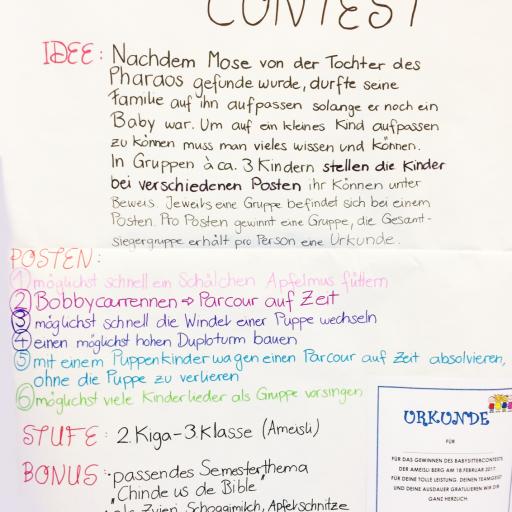 CONTEST
IDEE: Nachdem Mose von der Tochter des
Pharaos gefunde wurde, durfte seine
Familie auf ihn aufpassen solange er noch ein
Baby war. Um auf ein kleines Kind aufpassen
zu können muss man vieles wissen und können.
In Gruppen à ca. 3 Kindern stellen die Kinder
bei verschiedenen Posten ihr Können unter
Beweis. Jeweils eine Gruppe befindet sich bei einem
Posten. Pro Posten gewinnt eine Gruppe, die Gesamt-
siegergruppe erhält pro Person eine Urkunde.
POSTEN:
① möglichst schnell ein Schälchen Apfelmus füttern
② Bobbycarrennen ⇨ Parcour auf Zeit
③ möglichst schnell die Windel einer Puppe wechseln
④ einen möglichst hohen Duploturm bauen
⑤ mit einem Puppenkinderwagen einen Parcour auf Zeit absolvieren,
ohne die Puppe zu verlieren
⑥ möglichst viele Kinderlieder als Gruppe vorsingen
STUFE: 2. Kiga-3. Klasse (Ameisli)
BONUS: · passendes Semesterthema
"Chinde us de Bible"
Zvieri, Schoggimilch, Apfelschnitze
URKUNDE
FÜR
FÜR DAS GEWINNEN DES BABYSITTERCONTESTS
DER AMEISLI BERG AM 18. FEBRUAR 2017.
FÜR DEINE TOLLE LEISTUNG, DEINEN TEAMGEIST
UND DEINE AUSDAUER GRATULIEREN WIR DIR
GANZ HERZLICH.